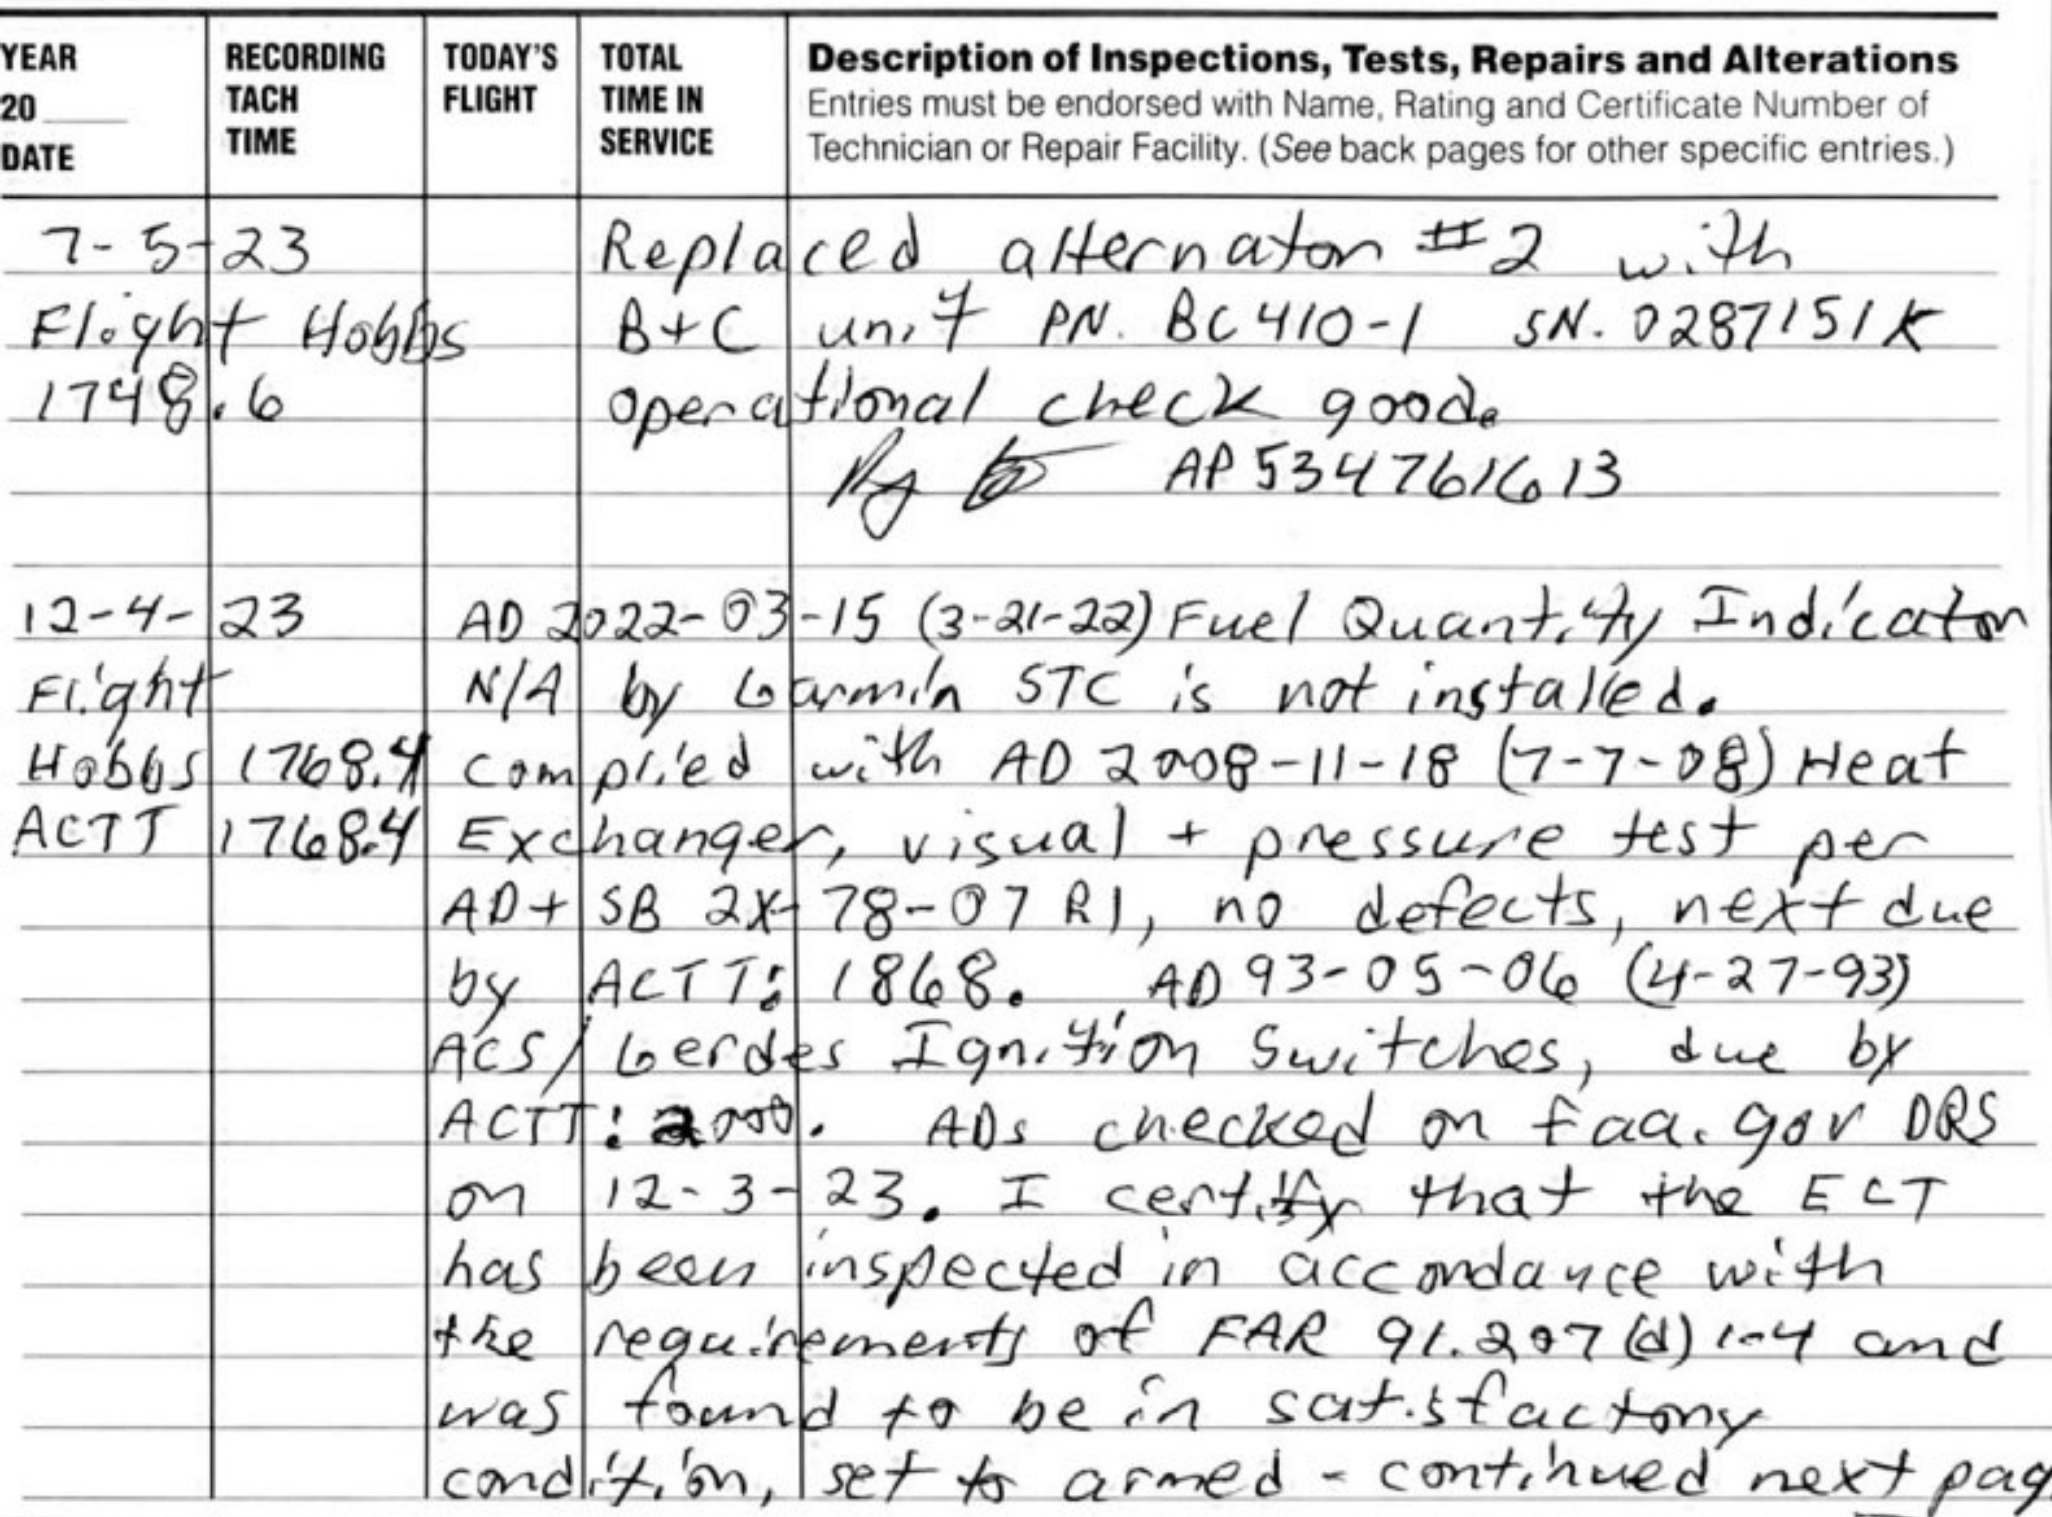 YEAR
20
DATE
RECORDING
TACH
TIME
TODAY'S
FLIGHT
TOTAL
TIME IN
SERVICE
Description of Inspections, Tests, Repairs and Alterations
Entries must be endorsed with Name, Rating and Certificate Number of
Technician or Repair Facility. (See back pages for other specific entries.)
7-5-23 Replaced alternator #2 with
Flight Hobbs B+C unit PN. BC410-1 SN. 0287151K
1748.6 operational check good.
AP 534761613
12-4-23 AD 2022-03-15 (3-21-22) Fuel Quantity Indicator
Flight N/A by Garmin STC is not installed.
Hobbs 1768.4 complied with AD 2008-11-18 (7-7-08) Heat
ACTT 1768.4 Exchanger, visual + pressure test per
AD + SB 2X-78-07 R1, no defects, next due
by ACTT: 1868. AD 93-05-06 (4-27-93)
ACS/Gerdes Ignition Switches, due by
ACTT: 2000. ADs checked on faa.gov DRS
on 12-3-23. I certify that the ELT
has been inspected in accordance with
the requirements of FAR 91.207(d) 1-4 and
was found to be in satisfactory
condition, set to armed - continued next pag